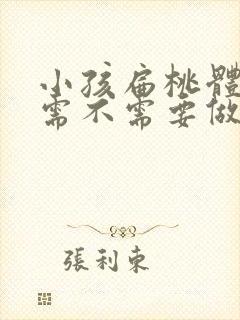 小孩扁桃體
需不需要做
張利東